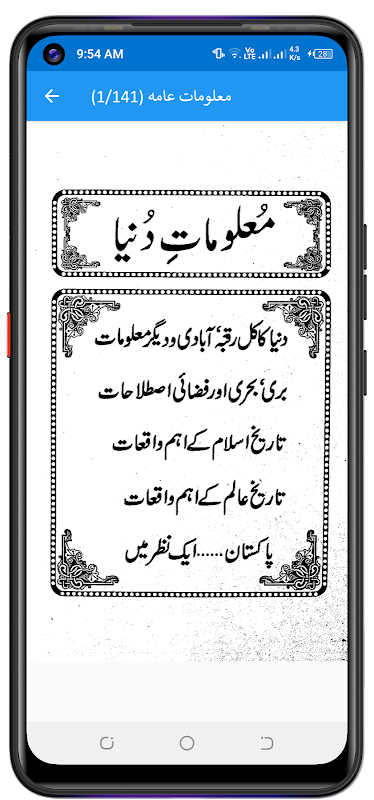 9:54 AM
Vo LTE 4.3 K/s 28
معلومات عامه (1/141)
مُعلوماتِ دُنیا
دنیا کا کل رقبہ‘ آبادی و دیگر معلومات
بری‘ بحری اور فضائی اصطلاحات
تاریخ اسلام کے اہم واقعات
تاریخ عالم کے اہم واقعات
پاکستان ...... ایک نظر میں